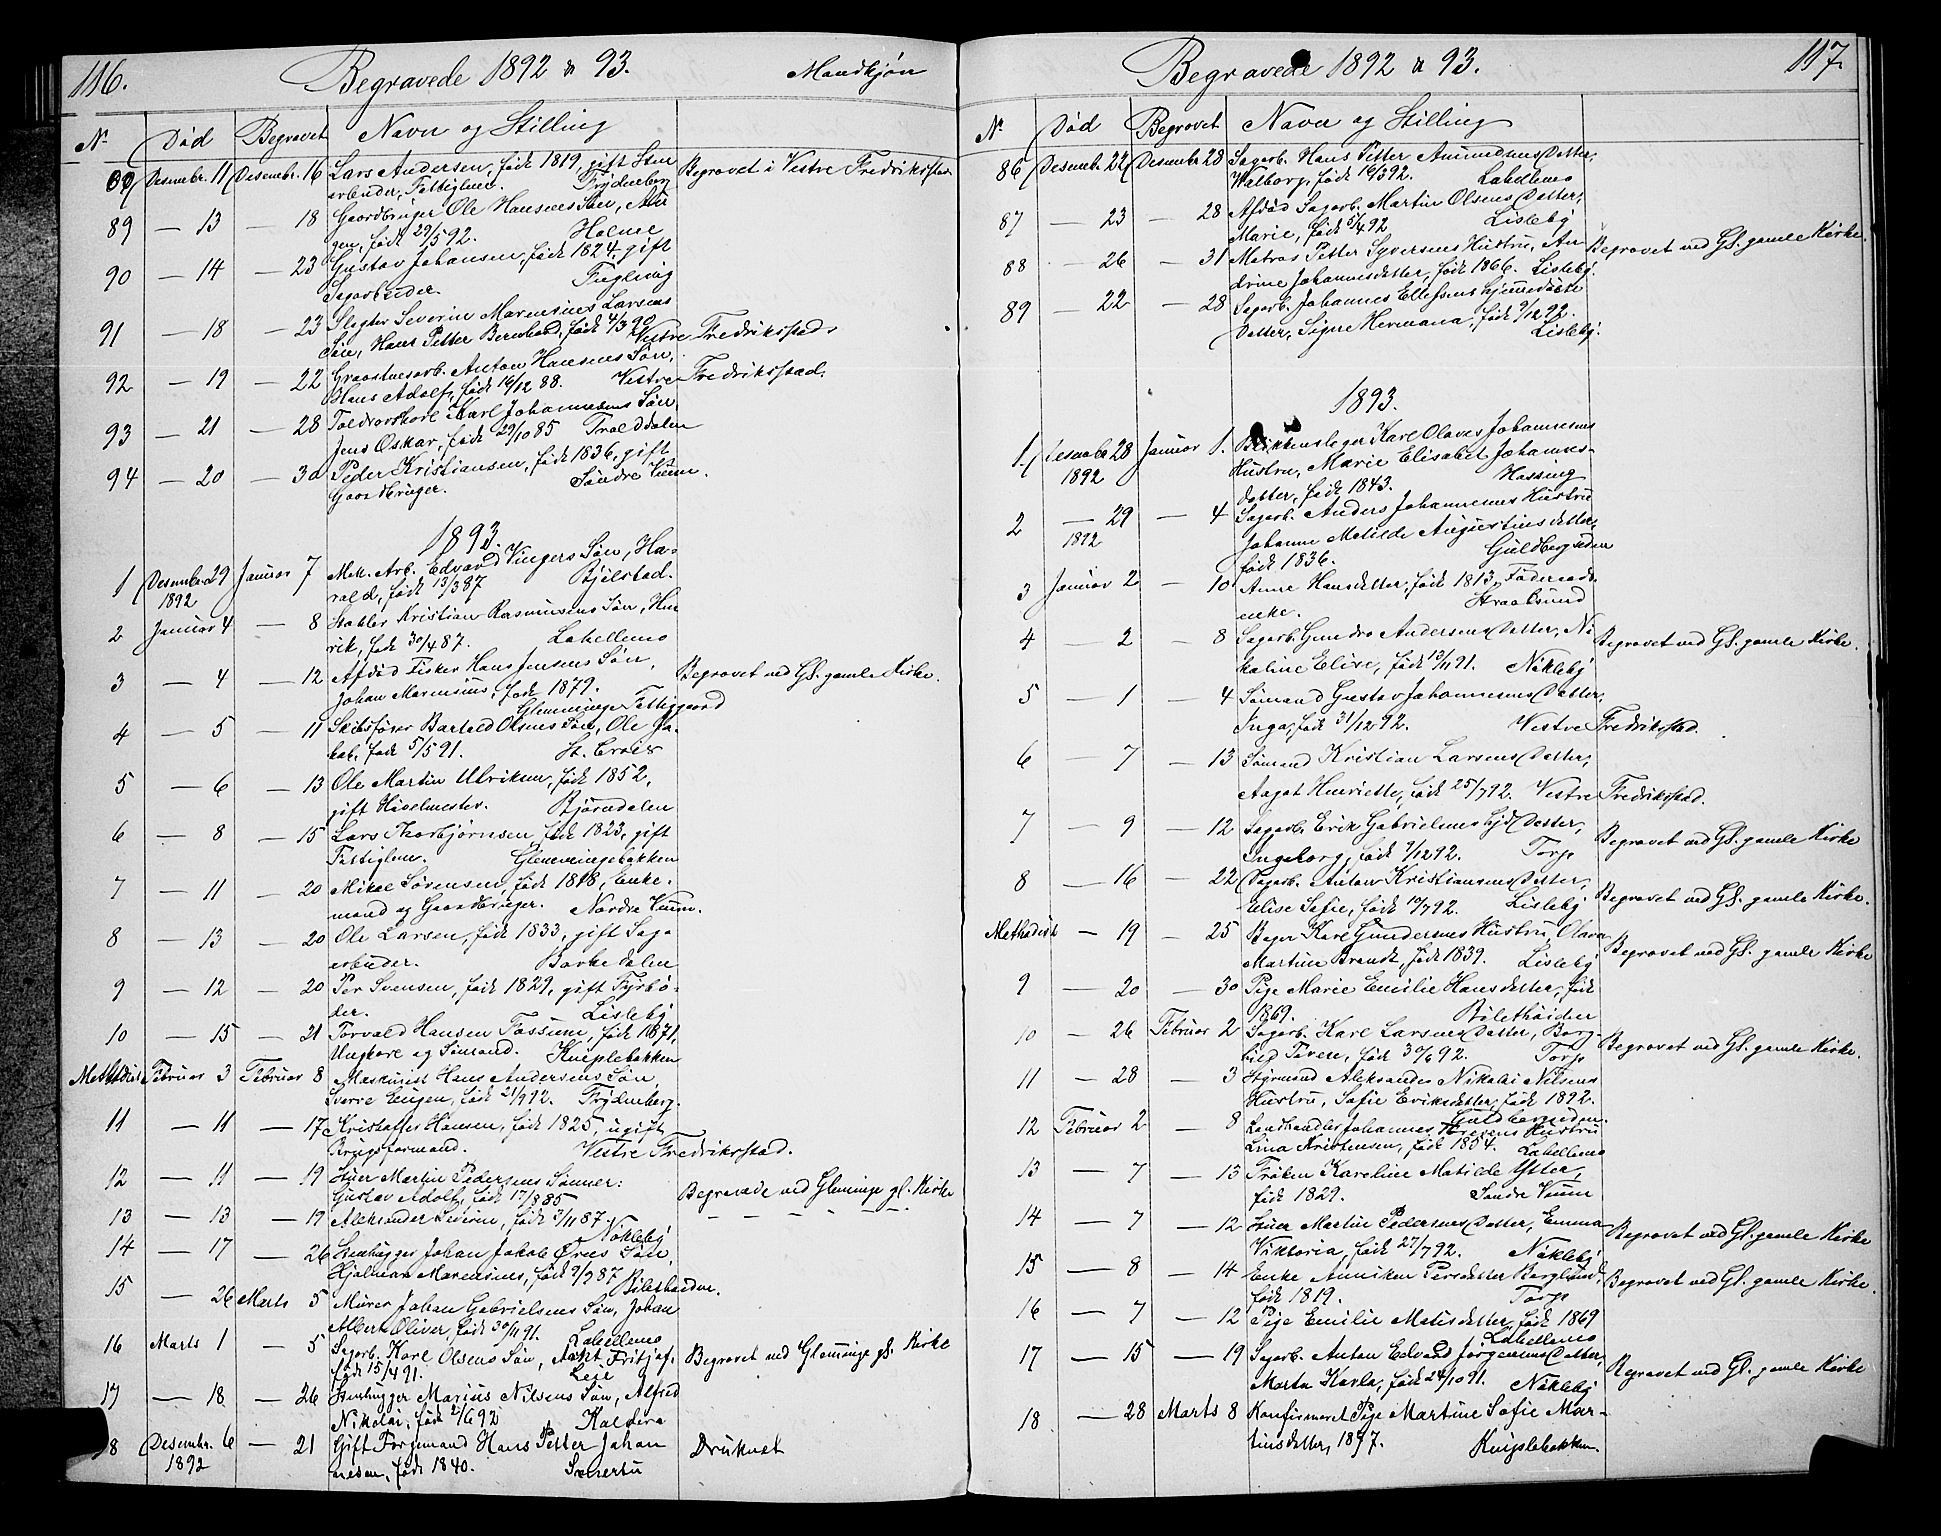 116.
Begravede 1892 & 93.
Mandkjøn
No Død Begravet Navn og Stilling
Desember. 11 Desembr. 16 Lars Andersen, født 1819, gift Sten
arbeider, Fattiglem. Frydenberg
Begravet i Vestre Fredriksstad
89 — 13 — 18 Gaardbruger Ole Hansens Søn,
gen, født 29/5 92. Holme
90 — 14 — 23 Gustav Johansen, født 1824, gift
Sagarbeider.
91 — 18 — 23 Slagter Severin Marensius Larsens
Søn, Hans Petter Bernhard, født 4/3 90 Vestre Fredriksstad
92 — 19 — 22 Graastensarb. Anton Hansens Søn,
Hans Adolf, født 16/12 88. Vestre Fredriksstad.
93 — 21 — 28 Toldvorskarl Karl Johannesens Søn,
Jens Oskar, født 29/10 85 Trolddalen
94 — 20 — 30 Peder Kristiansen, født 1836, gift
Gaardbruger. Søndre Vium.
1893.
1 Desembr 29 Januar 7 Mek. Arb. Edvard Vingers Søn, Ha-
1892 rald, født 13/3 87 Bjølstad.
2 Januar 4 — 8 Stabler Kristian Rasmusens Søn, Hen
rik, født 30/4 87. Labellemo
3 — 4 — 12 Afdød Fisker Hans Jensens Søn,
Johan Marensius, født 1879.
Glemminge Fattiggaard
Begravet ved Gl. gamle Kirke.
4 — 5 — 11 Skibsfører Bartold Olsens Søn, Ole Ja-
kob, født 5/5 91. St. Croix
5 — 6 — 13 Ole Martin Ulriksen, født 1852,
gift Høvelmester. Bjørndalen
6 — 8 — 15 Lars Thorbjørnsen, født 1823, gift
Fattiglem. Glemmingebakken
7 — 11 — 20 Mikal Sørensen, født 1818, Enke-
mand og Gaardbruger. Nordre Vium.
8 — 13 — 20 Ole Larsen, født 1833, gift Sag-
arbeider. Borkedalen
9 — 12 — 20 Per Svensen, født 1829, gift Fyrbø-
der. Lisleby
10 — 15 — 21 Torvald Hansen Fossum, født 1871,
Ungkarl og Sømand. Kniplebakken
Methodist Februar 3 Februar 8 Maskinist Hans Andersens Søn,
Sverre Eugen, født 21/9 92. Frydenberg.
11 — 11 — 17 Kristoffer Hansen, født 1825, ugift
Brugsformand. Vestre Fredriksstad.
12 — 11 — 19 Huer Martin Pedersens Sønner:
Gustav Adolf, født 17/8 85
Begravede ved Glemminge gl. Kirke
13 — 13 — 19 Aleksander Severin, født 3/11 87.
Nøkleby
14 — 17 — 26 Stenhugger Johan Jakob Ørnes Søn,
Hjalmar Marensius, født 9/9 87
15 — 26 Marts 5 Murer Johan Gabrielsens Søn, Johan
Albert Oliver, født 30/11 91. Labellemo
16 Marts 1 — 5 Sagarb. Karl Olsens Søn, Fritjof,
født 15/4 91. Leie
Begravet ved Glemminge gl. Kirke
17 — 18 — 26 Stenhugger Marius Nilsens Søn, Alfred
Nikolai, født 2/6 92 Kaldera
8 Desembr. 6 — 21 Gift Formand Hans Petter Johan
1892 nesen, født 1840.
Druknet
Begravede 1892 & 93.
117.
No Død Begravet Navn og Stilling
86 Desembr. 22 Desembr 28 Sagarb. Hans Petter Amundsens Datter,
Walborg, født 16/3 92. Labellemo
87 — 23 — 28 Afdød Sagarb. Martin Olsens Datter,
Marie, født 5/4 92 Lisleby
88 — 26 — 31 Matros Petter Syversens Hustru, An
drine Johannesdatter, født 1866. Lisleby.
Begravet ved Gl. gamle Kirke.
89 — 22 — 28 Sagarb. Johannes Ellefsens hjemmedøbte
Datter, Signe Hermana, født 9/12 92.
Lisleby.
1893.
1 Desembr 28 Januar 1. Blikkenslager Karl Olaves Johannesens
1892 Hustru, Marie Elisabet Johannes-
datter, født 1843. Hassing
2 — 29 — 4 Sagarb. Anders Johannesens Hustru
1892 Johanne Matilde Augustinusdatter,
født 1836. Guldbergsiden
3 Januar 2 — 10 Anne Hansdatter, født 1813, Føderaads-
enke. Straalsund
4 — 2 — 8 Sagarb. Gundro Andersens Datter, Ni
kaline Elise, født 13/11 91. Nøkleby
Begravet ved Gl. gamle Kirke.
5 — 1 — 4 Sømand Gustav Johannesens Datter,
Inga, født 31/12 92. Vestre Fredriksstad.
6 — 7 — 13 Sømand Kristian Larsens Datter,
Aagot Henriette, født 25/7 92. Vestre Fredriksstad.
7 — 9 — 12 Sagarb. Erik Gabrielsens hjd Datter,
Ingeborg, født 9/12 92. Torp
Begravet ved Gl. gamle Kirke
8 — 16 — 22 Sagarb. Anton Kristiansens Datter,
Elise Sofie, født 10/7 92. Lisleby
Begravet ved Gl. gamle Kirke.
Methodist — 19 — 25 Bager Karl Gundersens Hustru, Olava
Martine Brandt, født 1839. Lisleby
Begravet ved Gl. gamle Kirke
9 — 20 — 30 Pige Marie Emilie Hansdatter, født
1869.
10 — 26 Februar 2 Sagarb. Karl Larsens Datter, Borg-
hild, født 30/6 92. Torp
Begravet ved Gl. gamle Kirke.
11 — 28 — 3 Styrmand Aleksander Nikolai Nilsens
Hustru, Sofie Eriksdatter, født 1892.
Guldbergsiden.
12 Februar 2 — 8 Landhandler Johannes Hustru
Lina Kristensen, født 1854. Labellemo
13 — 7 — 13 Frøken Karoline Matilde Ytter,
født 1829. Søndre Vium
14 — 7 — 12 Huer Martin Pedersens Datter, Emma
Viktoria, født 27/7 92. Nøkleby
Begravet ved Gl. gamle Kirke
15 — 8 — 14 Enke Anniken Persdatter Berglund,
født 1819. Torp
Begravet ved Gl. gamle Kirke.
16 — 7 — 12 Pige Emilie Matisdatter, født 1869
Labellemo
17 — 15 — 19 Sagarb. Anton Edvard Jørgensens Datter,
Marta Karla, født 24/10 91. Nøkleby
Begravet ved Gl. gamle Kirke
18 — 28 Marts 8 Konfirmeret Pige Martine Sofie Mar-
tinsdatter, 1877. Kniplebakken.